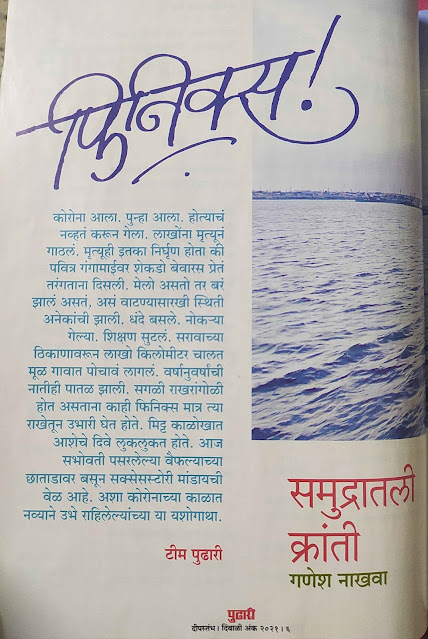 फिनिक्स!
कोरोना आला. पुन्हा आला. होत्याचं
नव्हतं करून गेला. लाखोंना मृत्यूनं
गाठलं. मृत्यूही इतका निर्घृण होता की
पवित्र गंगामाईवर शेकडो बेवारस प्रेतं
तरंगताना दिसली. मेलो असतो तर बरं
झालं असतं, असं वाटण्यासारखी स्थिती
अनेकांची झाली. धंदे बसले. नोकऱ्या
गेल्या. शिक्षण सुटलं. सरावाच्या
ठिकाणावरून लाखो किलोमीटर चालत
मूळ गावात पोचावं लागलं. वर्षानुवर्षांची
नातीही पातळ झाली. सगळी राखरांगोळी
होत असताना काही फिनिक्स मात्र त्या
राखेतून उभारी घेत होते. मिट्ट काळोखात
आशेचे दिवे लुकलुकत होते. आज
सभोवती पसरलेल्या वैफल्याच्या
छाताडावर बसून सक्सेसस्टोरी मांडायची
वेळ आहे. अशा कोरोनाच्या काळात
नव्याने उभे राहिलेल्यांच्या या यशोगाथा.
टीम पुढारी
समुद्रातली
क्रांती
गणेश नाखवा
पुढारी
दीपस्तंभ। दिवाळी अंक २०२१।६